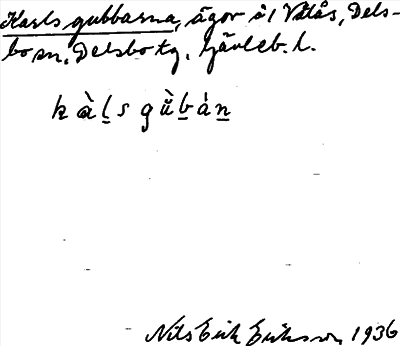 Karlsgubbarna, ägor i Vitås, Dels-
bo sn, Delsbo tg, Gävleb. l.
k à l s g ù b á n
Nils Erik Eriksson 1936